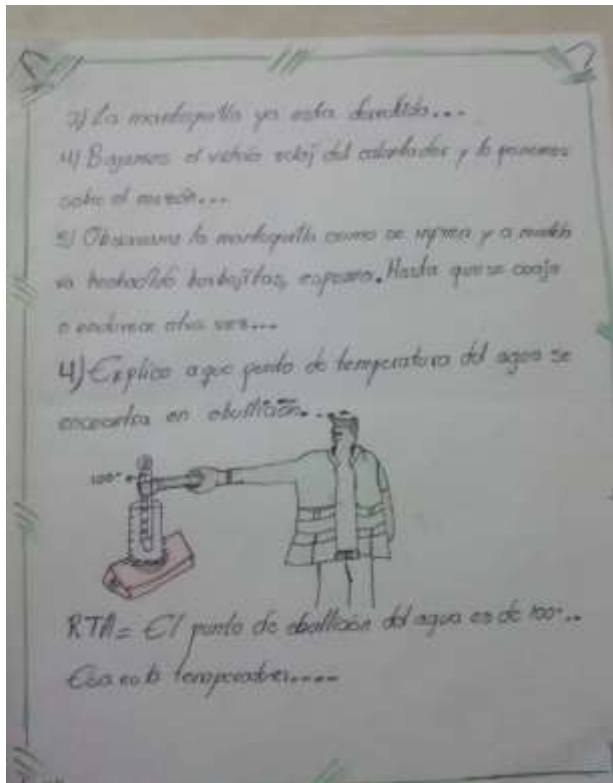 3) La mantequilla ya esta derretida...
4) Bajamos el vidrio reloj del calentador y lo ponemos
sobre el mesón...
5) Observamos la mantequilla como se y a medida
va burbujitas, espuma. Hasta que se cuaja
o endurece otra vez...
4) Explico a que punto de temperatura del agua se
encuentra en ebullición...
100°
RTA= El punto de ebullición del agua es de 100°..
Esa es la temperatura....